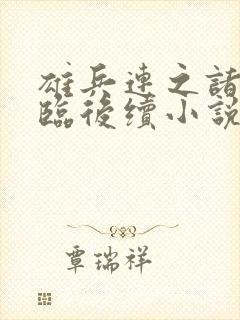 雄兵連之諸
臨後續小說
覃瑞祥